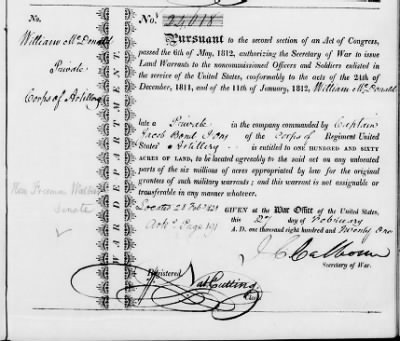 No.
No. 24,018
William McDonald
Private
Corps of Artillery
WAR DEPARTMENT.
Pursuant to the second section of an Act of Congress,
passed the 6th of May, 1812, authorizing the Secretary of War to issue
Land Warrants to the noncommissioned Officers and Soldiers enlisted in
the service of the United States, conformably to the acts of the 24th of
December, 1811, and of the 11th of January, 1812, William McDonald
late a Private in the company commanded by Captain
Jacob of the Corps of Regiment United
States' Artillery is entitled to ONE HUNDRED AND SIXTY
ACRES OF LAND, to be located agreeably to the said act on any unlocated
parts of the six millions of acres appropriated by law for the original
grantees of such military warrants; and this warrant is not assignable or
transferable in any manner whatever.
Hon Freeman
Senate
Located 28 Feb 1821
Page 191
GIVEN at the War Office of the United States,
this 27 day of February
A. D. one thousand eight hundred and Twenty One
J C Calhoun
Secretary of War.
Registered
Nat Cutting
Clerk.